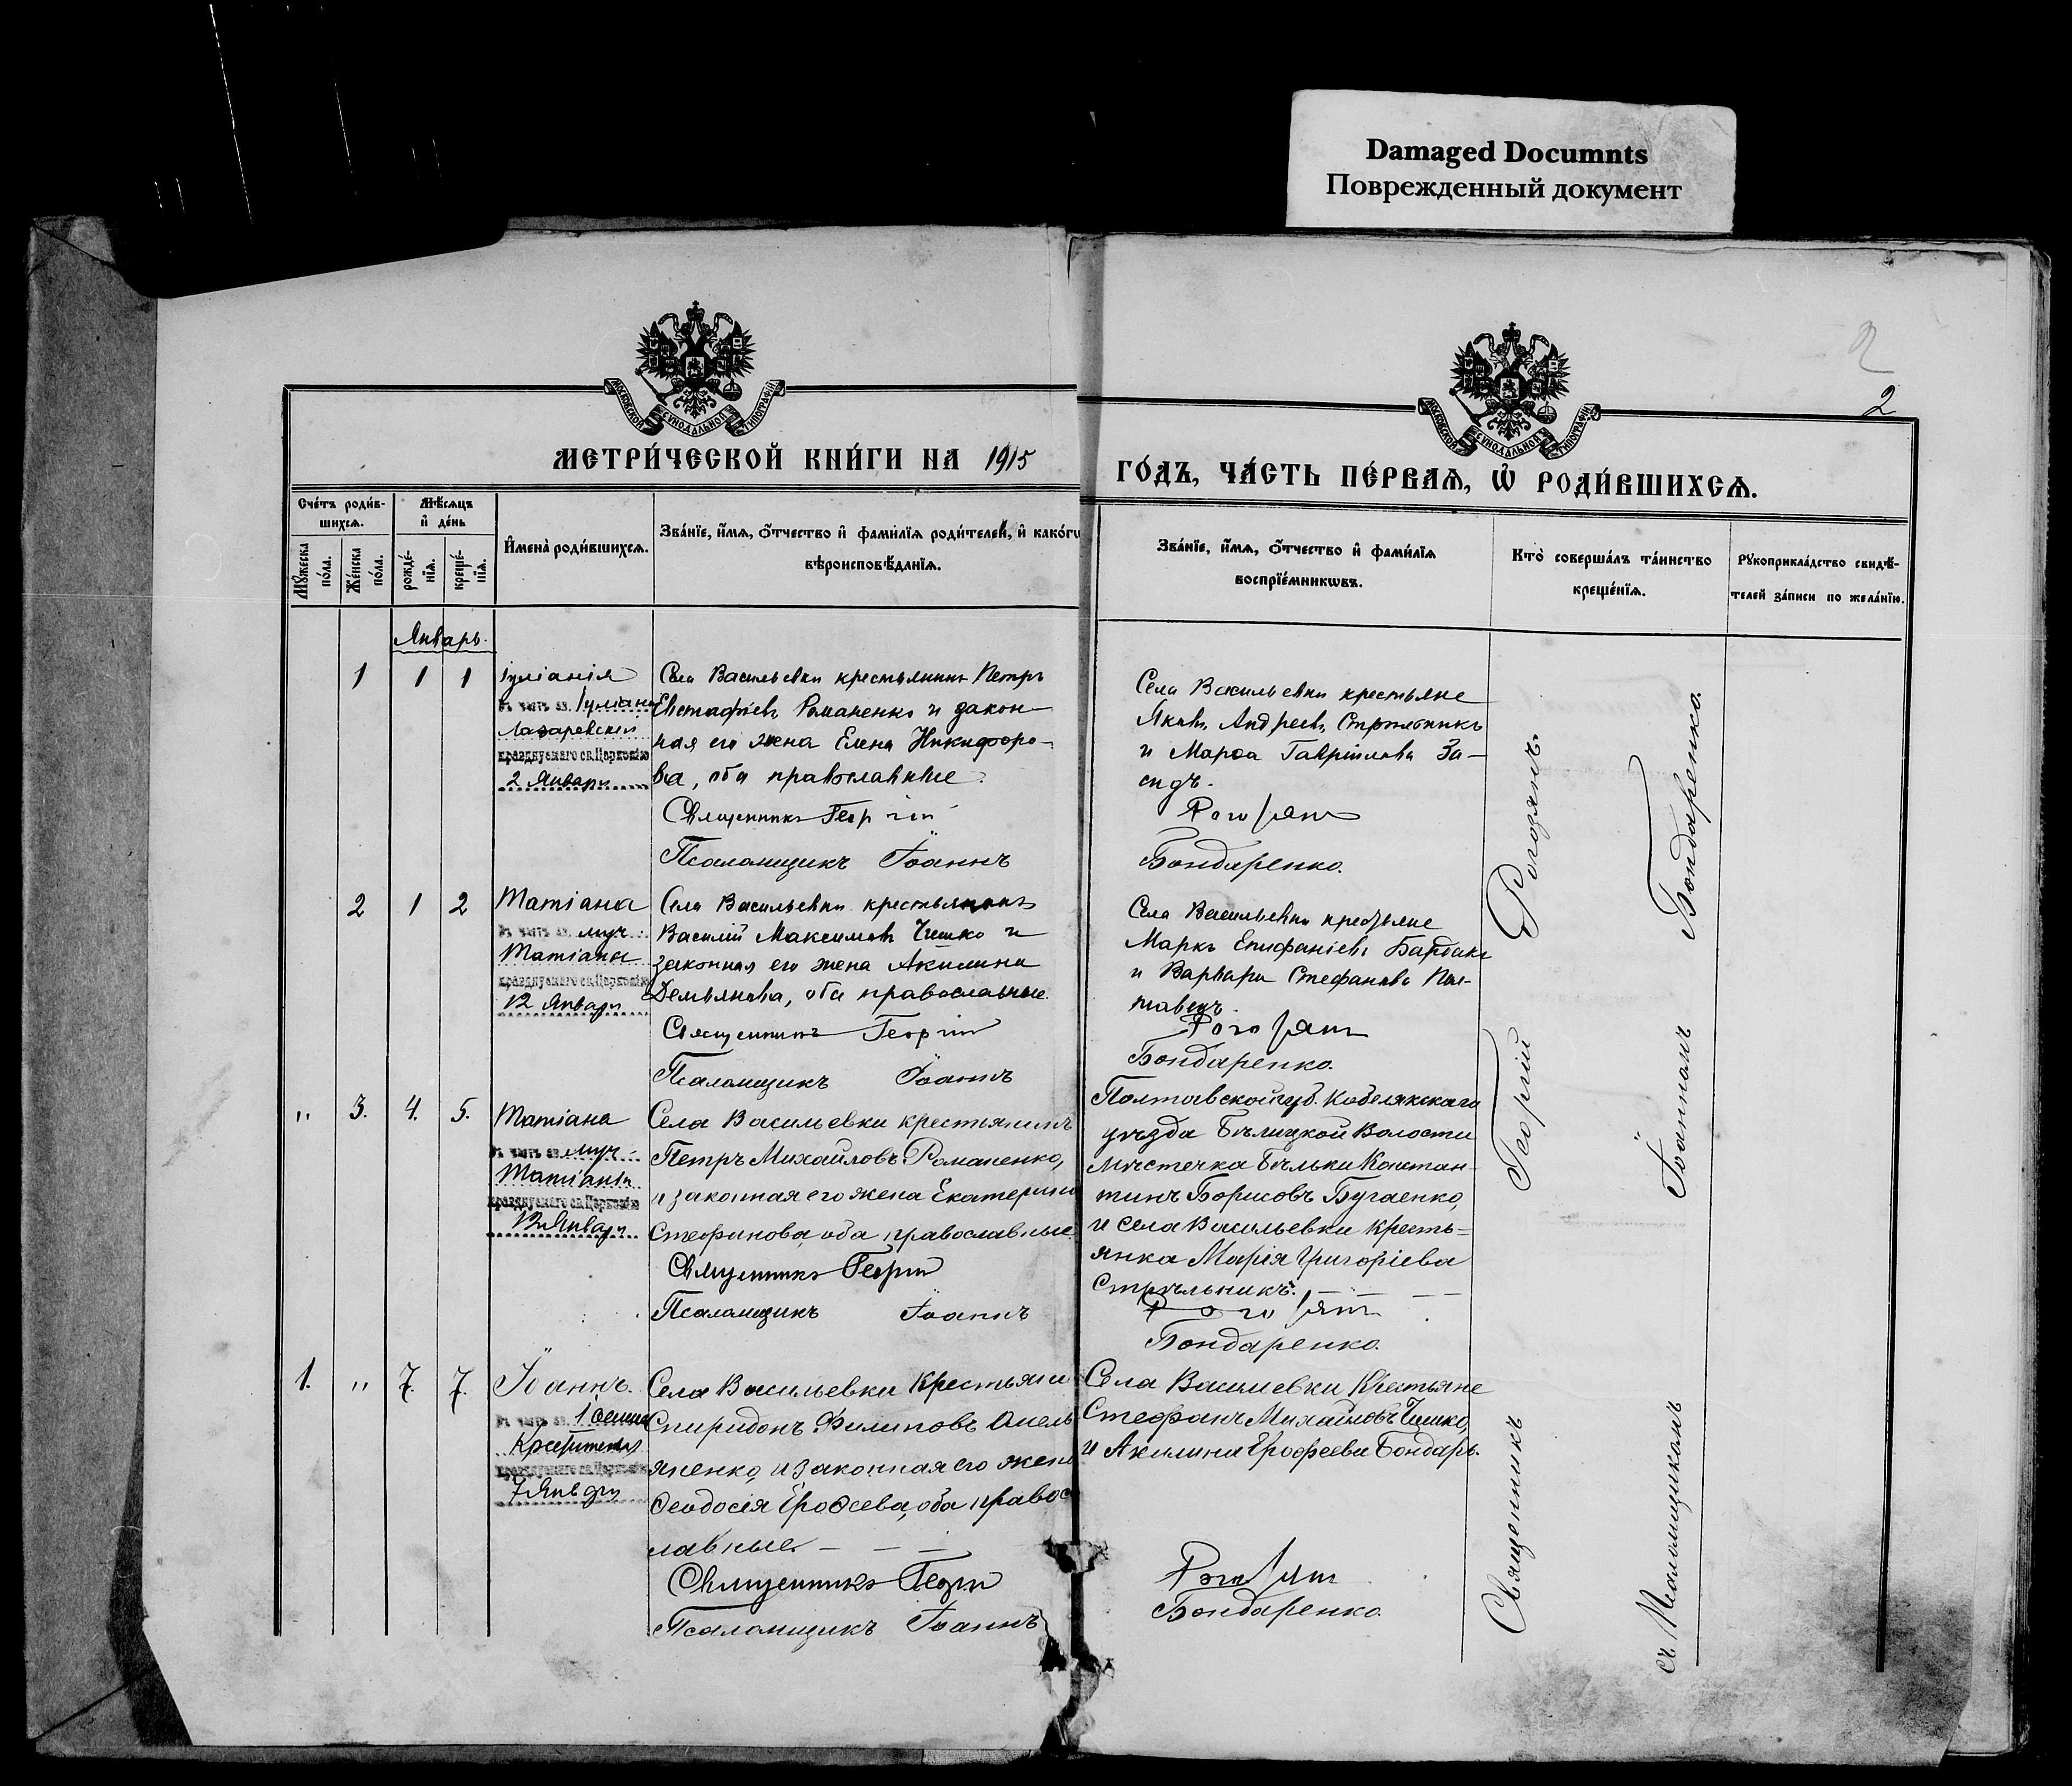 Damaged Documnts
Поврежденный документ
2
2
МОСКОВСКОЙ СѴНОДАЛЬНОЙ ТИПОГРАФІИ
МОСКОВСКОЙ СѴНОДАЛЬНОЙ ТИПОГРАФІИ
МЕТРИ́ЧЕСКОЙ КНИ́ГИ НА 1915
ГО́ДЪ, ЧА́СТЬ ПЕ́РВАѦ, Ѡ҆ РОДИ́ВШИХСѦ.
Сче́тъ роди́в-
шихсѧ.
Мѣ́сѧцъ
и҆ де́нь
Мꙋ́жеска
по́ла.
Же́нска
по́ла.
рожде́-
нїѧ.
креще́-
нїѧ.
И҆мена̀ роди́вшихсѧ.
Зва́нїе, и҆́мѧ, ѻ҆́тчество и҆ фами́лїѧ роди́телей, и҆ како́гѡ
вѣроисповѣ́данїѧ.
Зва́нїе, и҆́мѧ, ѻ҆́тчество и҆ фами́лїѧ
воспрїе́мникѡвъ.
Кто̀ соверша́лъ та́инство
креще́нїѧ.
Рꙋкоприкла́дство свидѣ́-
телей за́писи по жела́нїю.
Январь.
1 1 1
Іуліанія
въ честь св. Іуліаніи
Лазаревской
празднуемаго св. Церковію
2 Января
Села Васильевки крестьянинъ Петръ
Евстафіевъ Романенко и закон-
ная его жена Елена Никифоро-
ва, оба православные.
Священникъ Георгій
Псаломщикъ Іоаннъ
Села Васильевки крестьяне
Яковъ Андреевъ Стрѣльникъ
и Марѳа Гавріилова За-
Рогозянъ
Бондаренко.
2 1 2
Татіана
въ честь св. муч.
Татіаны
празднуемаго св. Церковію
12 Января
Села Васильевки крестьянинъ
Василій Максимовъ Чишко и
законная его жена Акилина
Демьянова, оба православные.
Священникъ Георгій
Псаломщикъ Іоаннъ
Села Васильевки крестьяне
Маркъ Епифаніевъ Барбакъ
и Варвара Стефанова Пол-
тавецъ.
Рогозянъ
Бондаренко.
" 3. 4. 5.
Татіана
въ честь св. муч.
Татіаны
празднуемаго св. Церковію
12 Января
Села Васильевки крестьянинъ
Петръ Михайловъ Романенко,
и законная его жена Екатерина
Стефанова, оба православные.
Священникъ Георгій
Псаломщикъ Іоаннъ
Полтавской губ. Кобелякскаго
уѣзда Бѣлицкой Волости
мѣстечка Бѣлики Констан-
тинъ Борисовъ Бугаенко,
и села Васильевки кресть-
янка Марія Григоріева
Стрѣльникъ.
Рогозянъ
Бондаренко.
1. " 7. 7.
Іоаннъ.
въ честь св. Іоанна
Крестителя
празднуемаго св. Церковію
7 Января
Села Васильевки крестьяни
Спиридонъ Филиповъ Омель
яненко, и законная его жена
Ѳеодосія Ероѳеева, оба право
славные.
Священникъ Георгій
Псаломщикъ Іоаннъ
Села Василевки Крестьяне
Стефанъ Михайловъ Чишко,
и Акилина Ерофеева Бондарь.
Рогозянъ
Бондаренко.
Священникъ Георгій Рогозянъ.
съ Псаломщикомъ Іоанномъ Бондаренко.